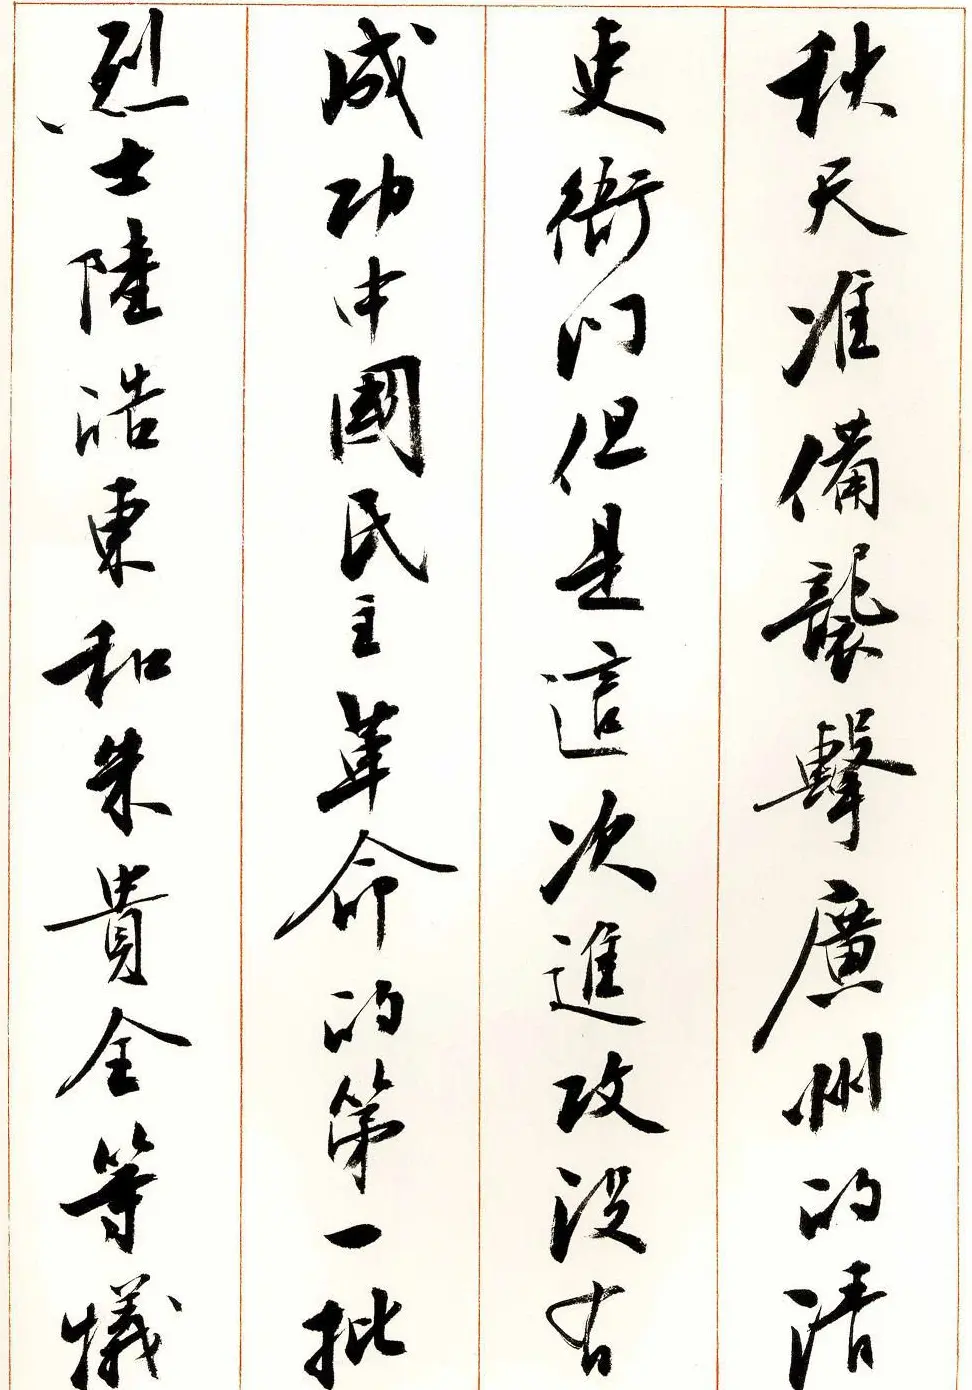 秋天准備襲擊廣州的清
吏衙门但是這次進攻没有
成功中國民主革命的第一批
烈士陸浩東和朱貴全等犧